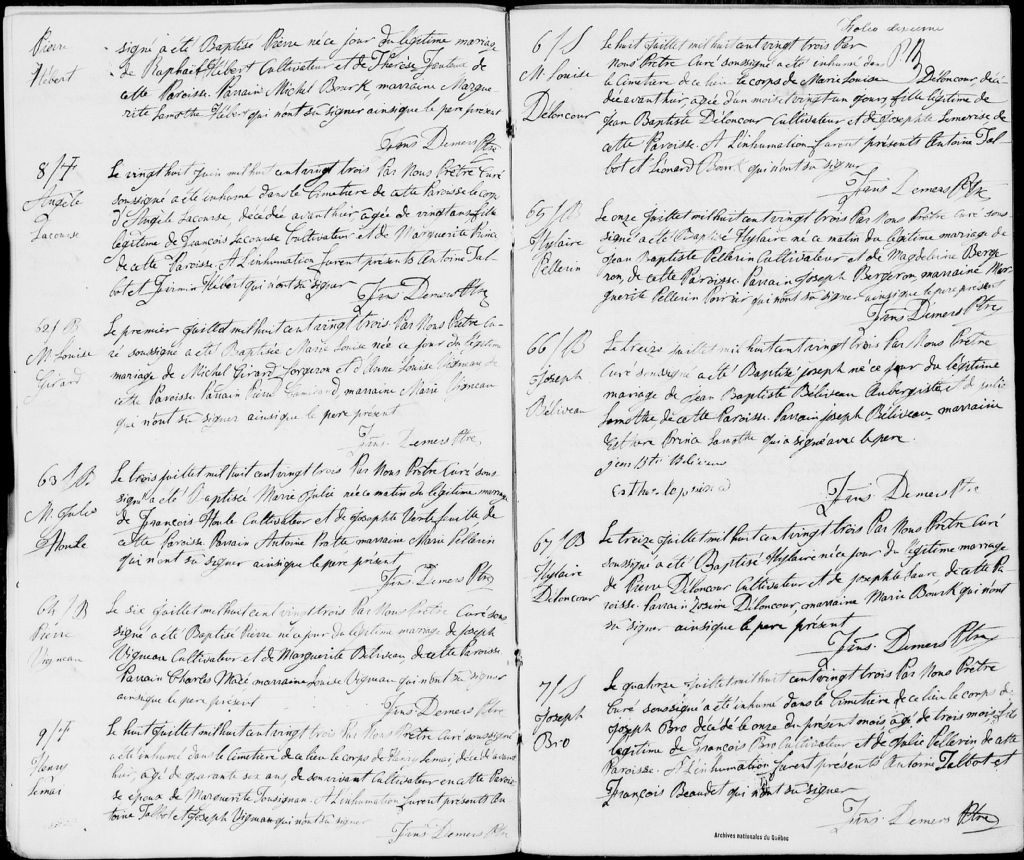 Pierre
Hébert
signé a été Baptisé Pierre né ce jour du légitime mariage
de Raphaël Hébert Cultivateur et de Thérèse de
cette Paroisse. Parrain Michel Bourk marraine Margue
rite Lamothe Hébert qui n'ont su signer ainsi que le pere présent
Frns Demers Ptre
8/S
Angèle
Lacourse
Le vingt huit juin mil huit cent vingt trois Par Nous Prêtre Curé
soussigné a été inhumé dans le Cimetière de cette Paroisse le corps
d'Angèle Lacourse, décédée avant hier, agée de vingt ans fille
légitime de François Lacourse Cultivateur et de Marguerite Prince
de cette Paroisse. A L'inhumation furent présents Antoine Tal
bot et Firmin Hébert qui n'ont su signer
Frns Demers Ptre
62/B
M. Louise
Girard
Le premier juillet mil huit cent vingt trois Par Nous Prêtre Cu
ré soussigné a été Baptisée Marie Louise née ce jour du légitime
mariage de Michel Girard Forgeron et d'Anne Louise Vigneau de
cette Paroisse Parrain Pierre marraine Marie Vigneau
qui n'ont su signer ainsi que le pere présent
Frns. Demers Ptre
63/B
M. Julie
Houle
Le trois juillet mil huit cent vingt trois Par Nous Prêtre Curé sous
signé a été Baptisée Marie Julie née ce matin du légitime mariage
de François Houle Cultivateur et de Josephte Vertefeuille de
cette Paroisse Parrain Antoine Pratte marraine Marie Pellerin
qui n'ont su signer ainsi que le pere présent
Frns Demers Ptre
64/B
Pierre
Vigneau
Le six juillet mil huit cent vingt trois Par Nous Prêtre Curé sous
signé a été Baptisé Pierre né ce jour du légitime mariage de Joseph
Vigneau Cultivateur et de Marguerite Béliveau, de cette Paroisse.
Parrain Charles Mazé marraine Louise Vigneau qui n'ont su signer
ainsi que le pere présent
Frns Demers Ptre
9/S
Henry
Lemai
Le huit juillet mil huit cent vingt trois Par Nous Prêtre Curé soussigné
a été inhumé dans le Cimetière de ce lieu le corps de Henry Lemai, décédé avant
hier, agé de quarante six ans de son vivant Cultivateur en cette Parois
se époux de Marguerite Tousignan. A L'inhumation furent présents An
toine Talbot et Joseph Vigneau qui n'ont su signer
Frns Demers Ptre
Folio dixieme
6/S
M. Louise
Deloncour
Le huit juillet mil huit cent vingt trois Par
Nous Prêtre Curé soussigné a été inhumé dans
le Cimetière de ce lieu le corps de Marie Louise Deloncour, décé
dée avant hier, agée d'un mois et vingt un jours, fille légitime de
Jean Baptiste Deloncour Cultivateur et de Josephte Lemerise de
cette Paroisse. A L'inhumation furent présents Antoine Tal
bot et Leonard Bourk qui n'ont su signer
Frns Demers Ptre
65/B
Hylaire
Pellerin
Le onze juillet mil huit cent vingt trois Par Nous Prêtre Curé sous
signé a été Baptisé Hylaire né ce matin du légitime mariage de
Jean Baptiste Pellerin Cultivateur et de Magdeleine Berge
ron, de cette Paroisse. Parrain Joseph Bergeron, marraine Mar
guerite Pellerin Poirier qui n'ont su signer ainsi que le pere présent
Frns Demers Ptre
66/B
Joseph
Béliveau
Le treize juillet mil huit cent vingt trois Par Nous Prêtre
Curé soussigné a été Baptisé Joseph né ce jour du légitime
mariage de Jean Baptiste Béliveau Aubergiste et de Julie
Lamothe de cette Paroisse. Parrain Joseph Béliveau, marraine
Esther Prince Lamothe qui a signé avec le pere.
Jean Bte Béliveau
Frns. Demers Ptre
67/B
Hylaire
Deloncour
Le treize juillet mil huit cent vingt trois Par Nous Prêtre Curé
soussigné a été Baptisé Hylaire né ce jour du légitime mariage
de Pierre Deloncour Cultivateur et de Josephte Laure, de cette Pa
roisse. Parrain Josime Deloncour, marraine Marie Bourk qui n'ont
su signer ainsi que le pere présent
Frns. Demers Ptre
7/S
Joseph
Bro
Le quatorze juillet mil huit cent vingt trois Par Nous Prêtre
Curé soussigné a été inhumé dans le Cimetière de ce lieu le corps de
Joseph Bro décédé le onze du présent mois agé de trois mois, fils
légitime de François Bro Cultivateur et de Julie Pellerin de cette
Paroisse. A L'inhumation furent présents Antoine Talbot et
François Beaudet qui n'ont su signer
Frns. Demers Ptre
Archives nationales du Québec